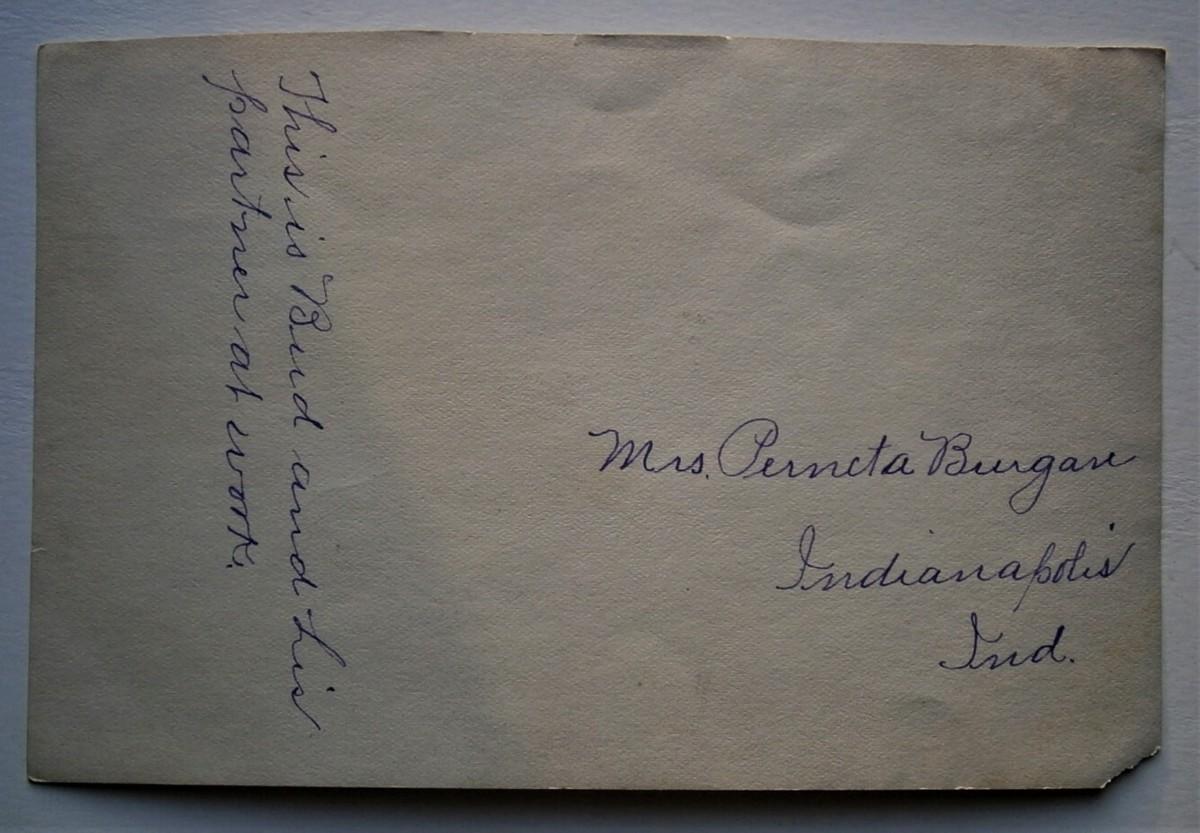 This is Bud and his
partner at work.
Mrs. Perneta Burgan
Indianapolis
Ind.